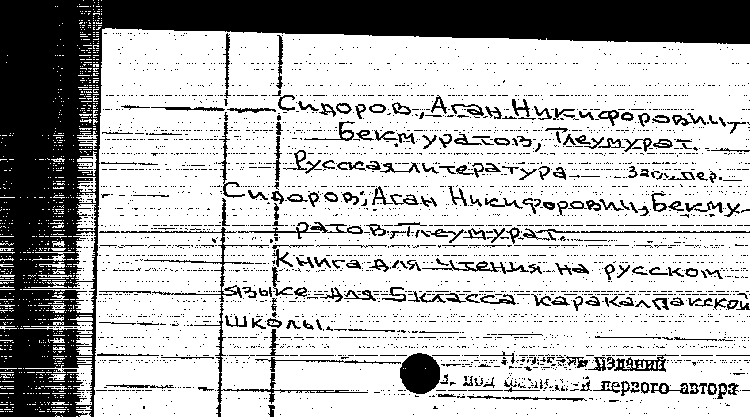 Сидоров, Аган Никифорович,
Бекмуратов, Тлеумурат.
Русская литература Загл. пер.
Сидоров, Аган Никифорович, Бекму-
ратов, Тлеумурат.
Книга для чтения на русском
языке для 5 класса каракалпакской
школы.
Перечень изданий
под фамилией первого автора